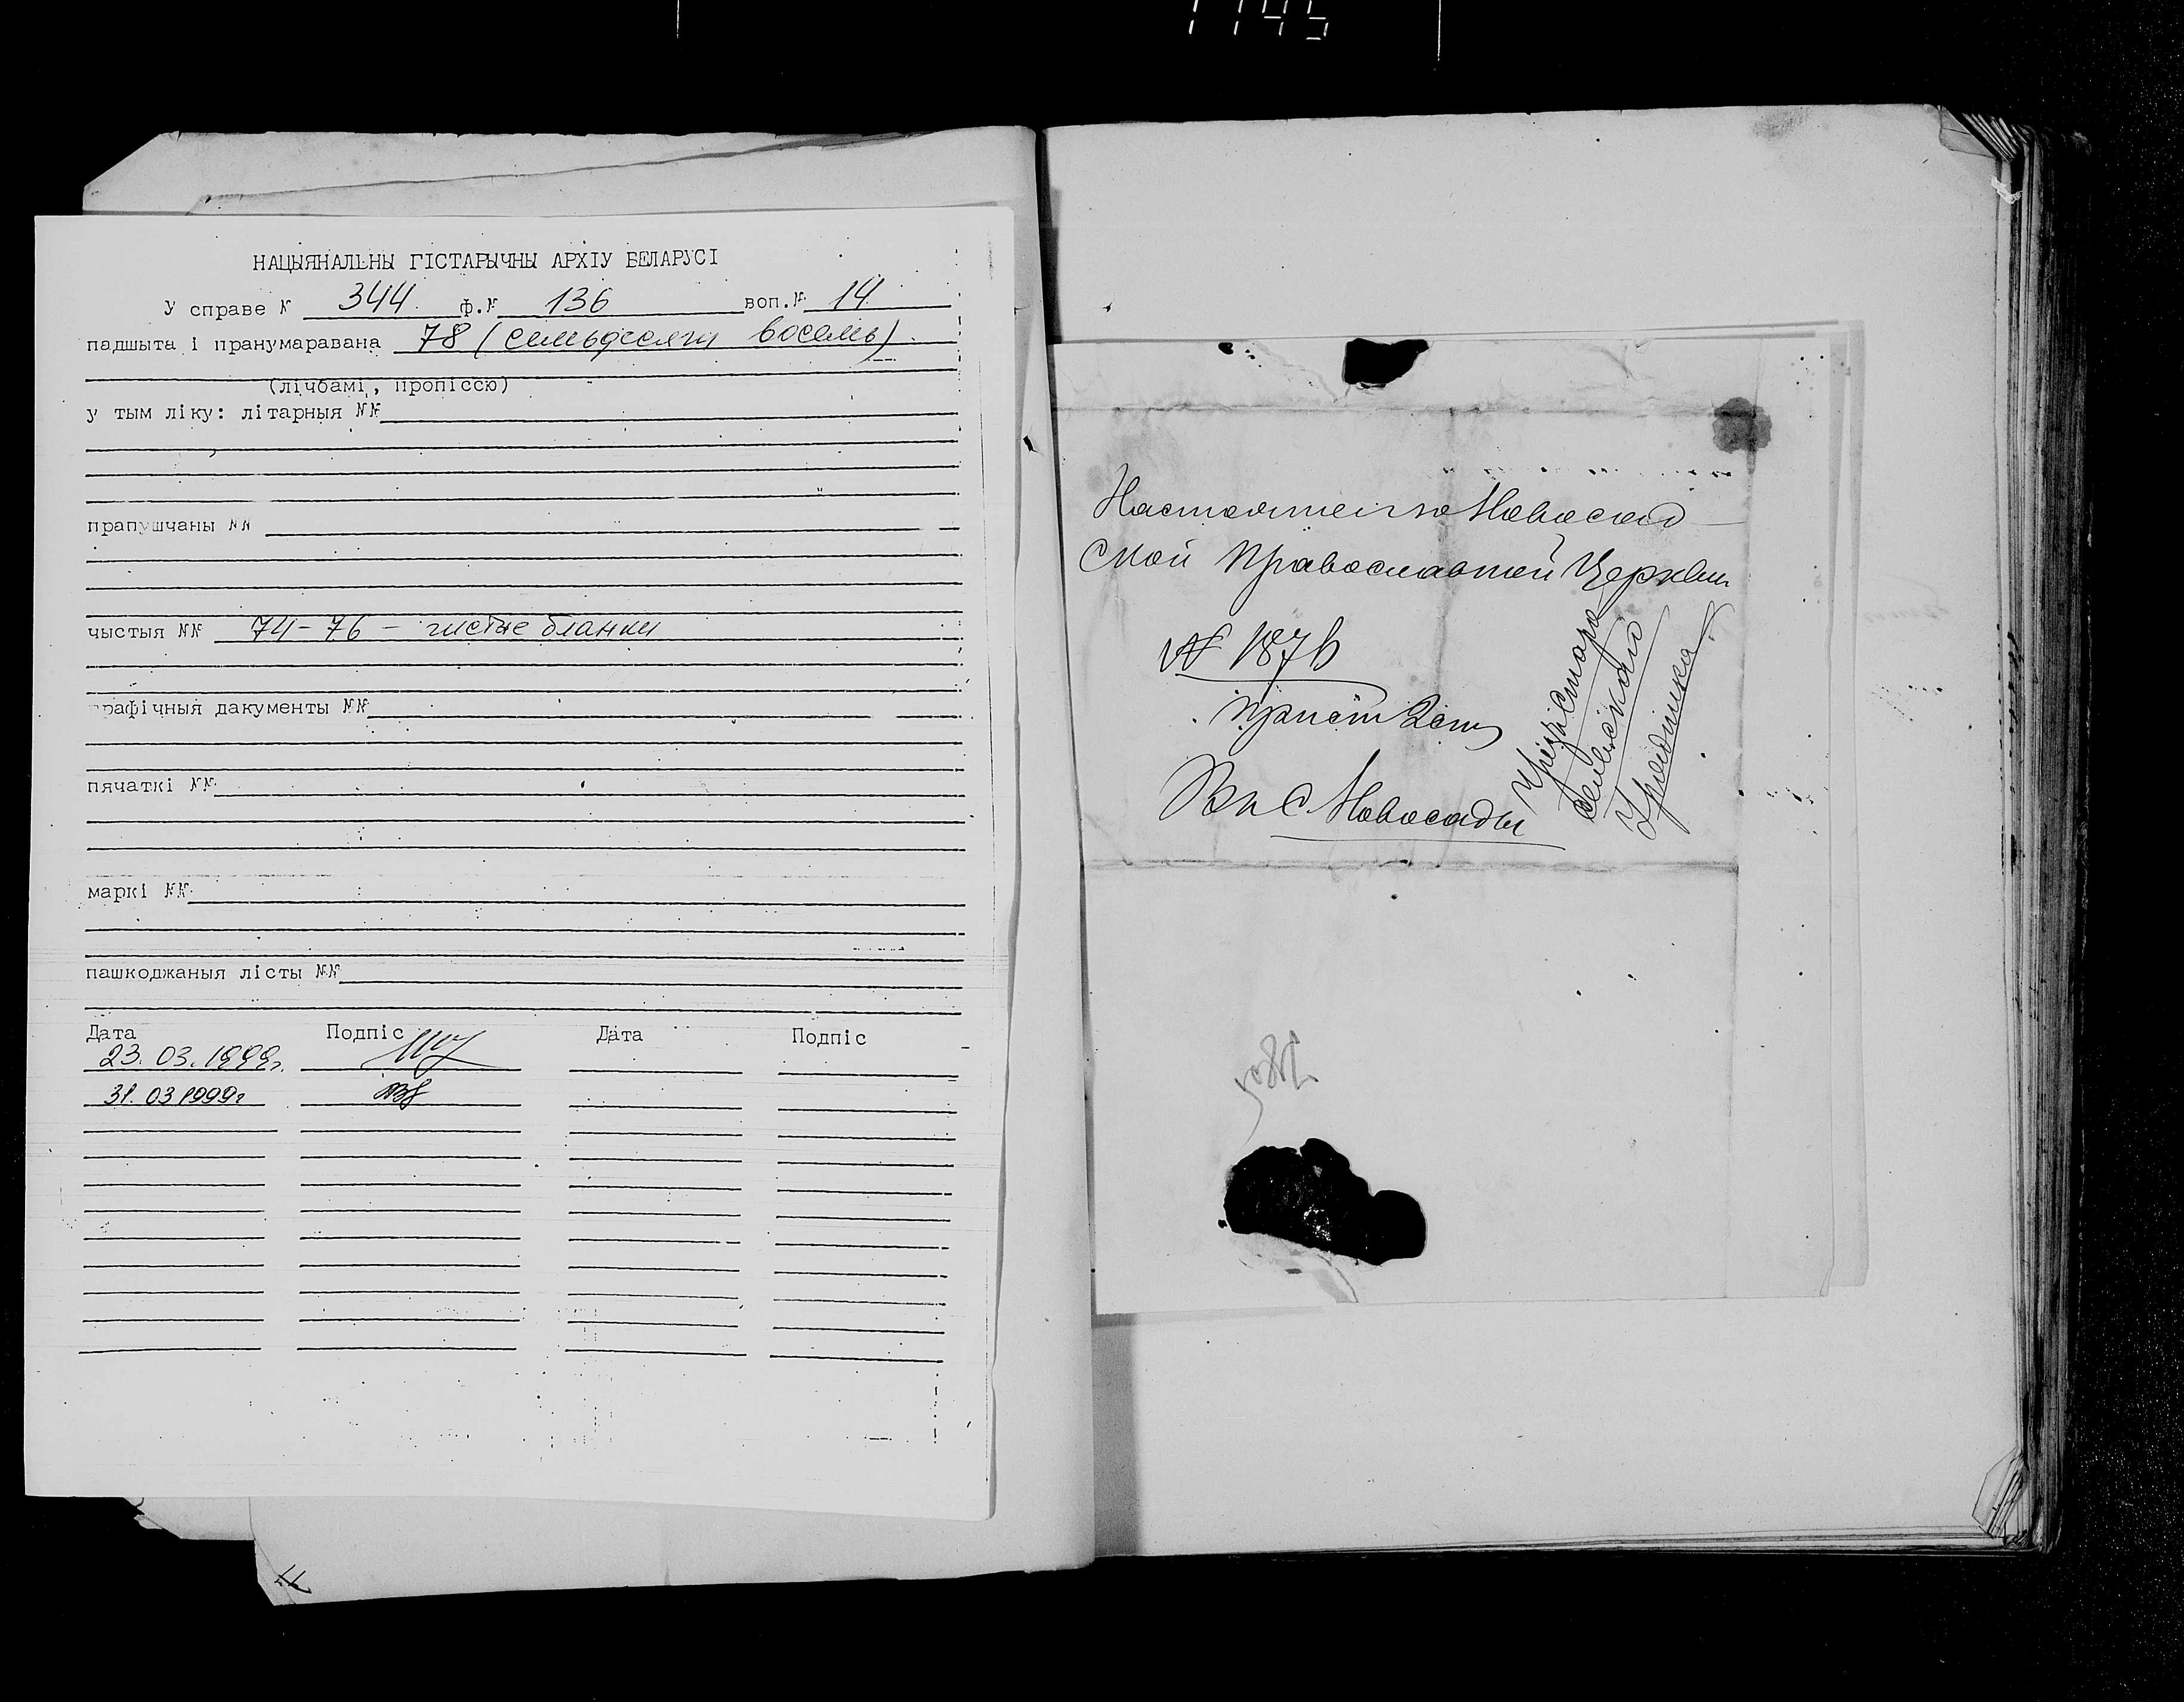 1145
НАЦЫЯНАЛЬНЫ ГІСТАРЫЧНЫ АРХІУ БЕЛАРУСІ
У справе № 344. ф.№ 136 воп.№ 14
падшыта і пранумаравана 78 (семьдесят восемь)
(лічбамі, пропіссю)
у тым ліку: літарныя №№
прапушчаны №№
чыстыя №№ 74-76 - чистые бланки
графічныя дакументы №№
пячаткі №№
маркі №№
пашкоджаныя лісты №№
Дата Подпіс Дата Подпіс
23.03.1999г.
31.03 1999г
Настоятелю Новосад
ской Православной Церкви
№ 1876
В с Новосады